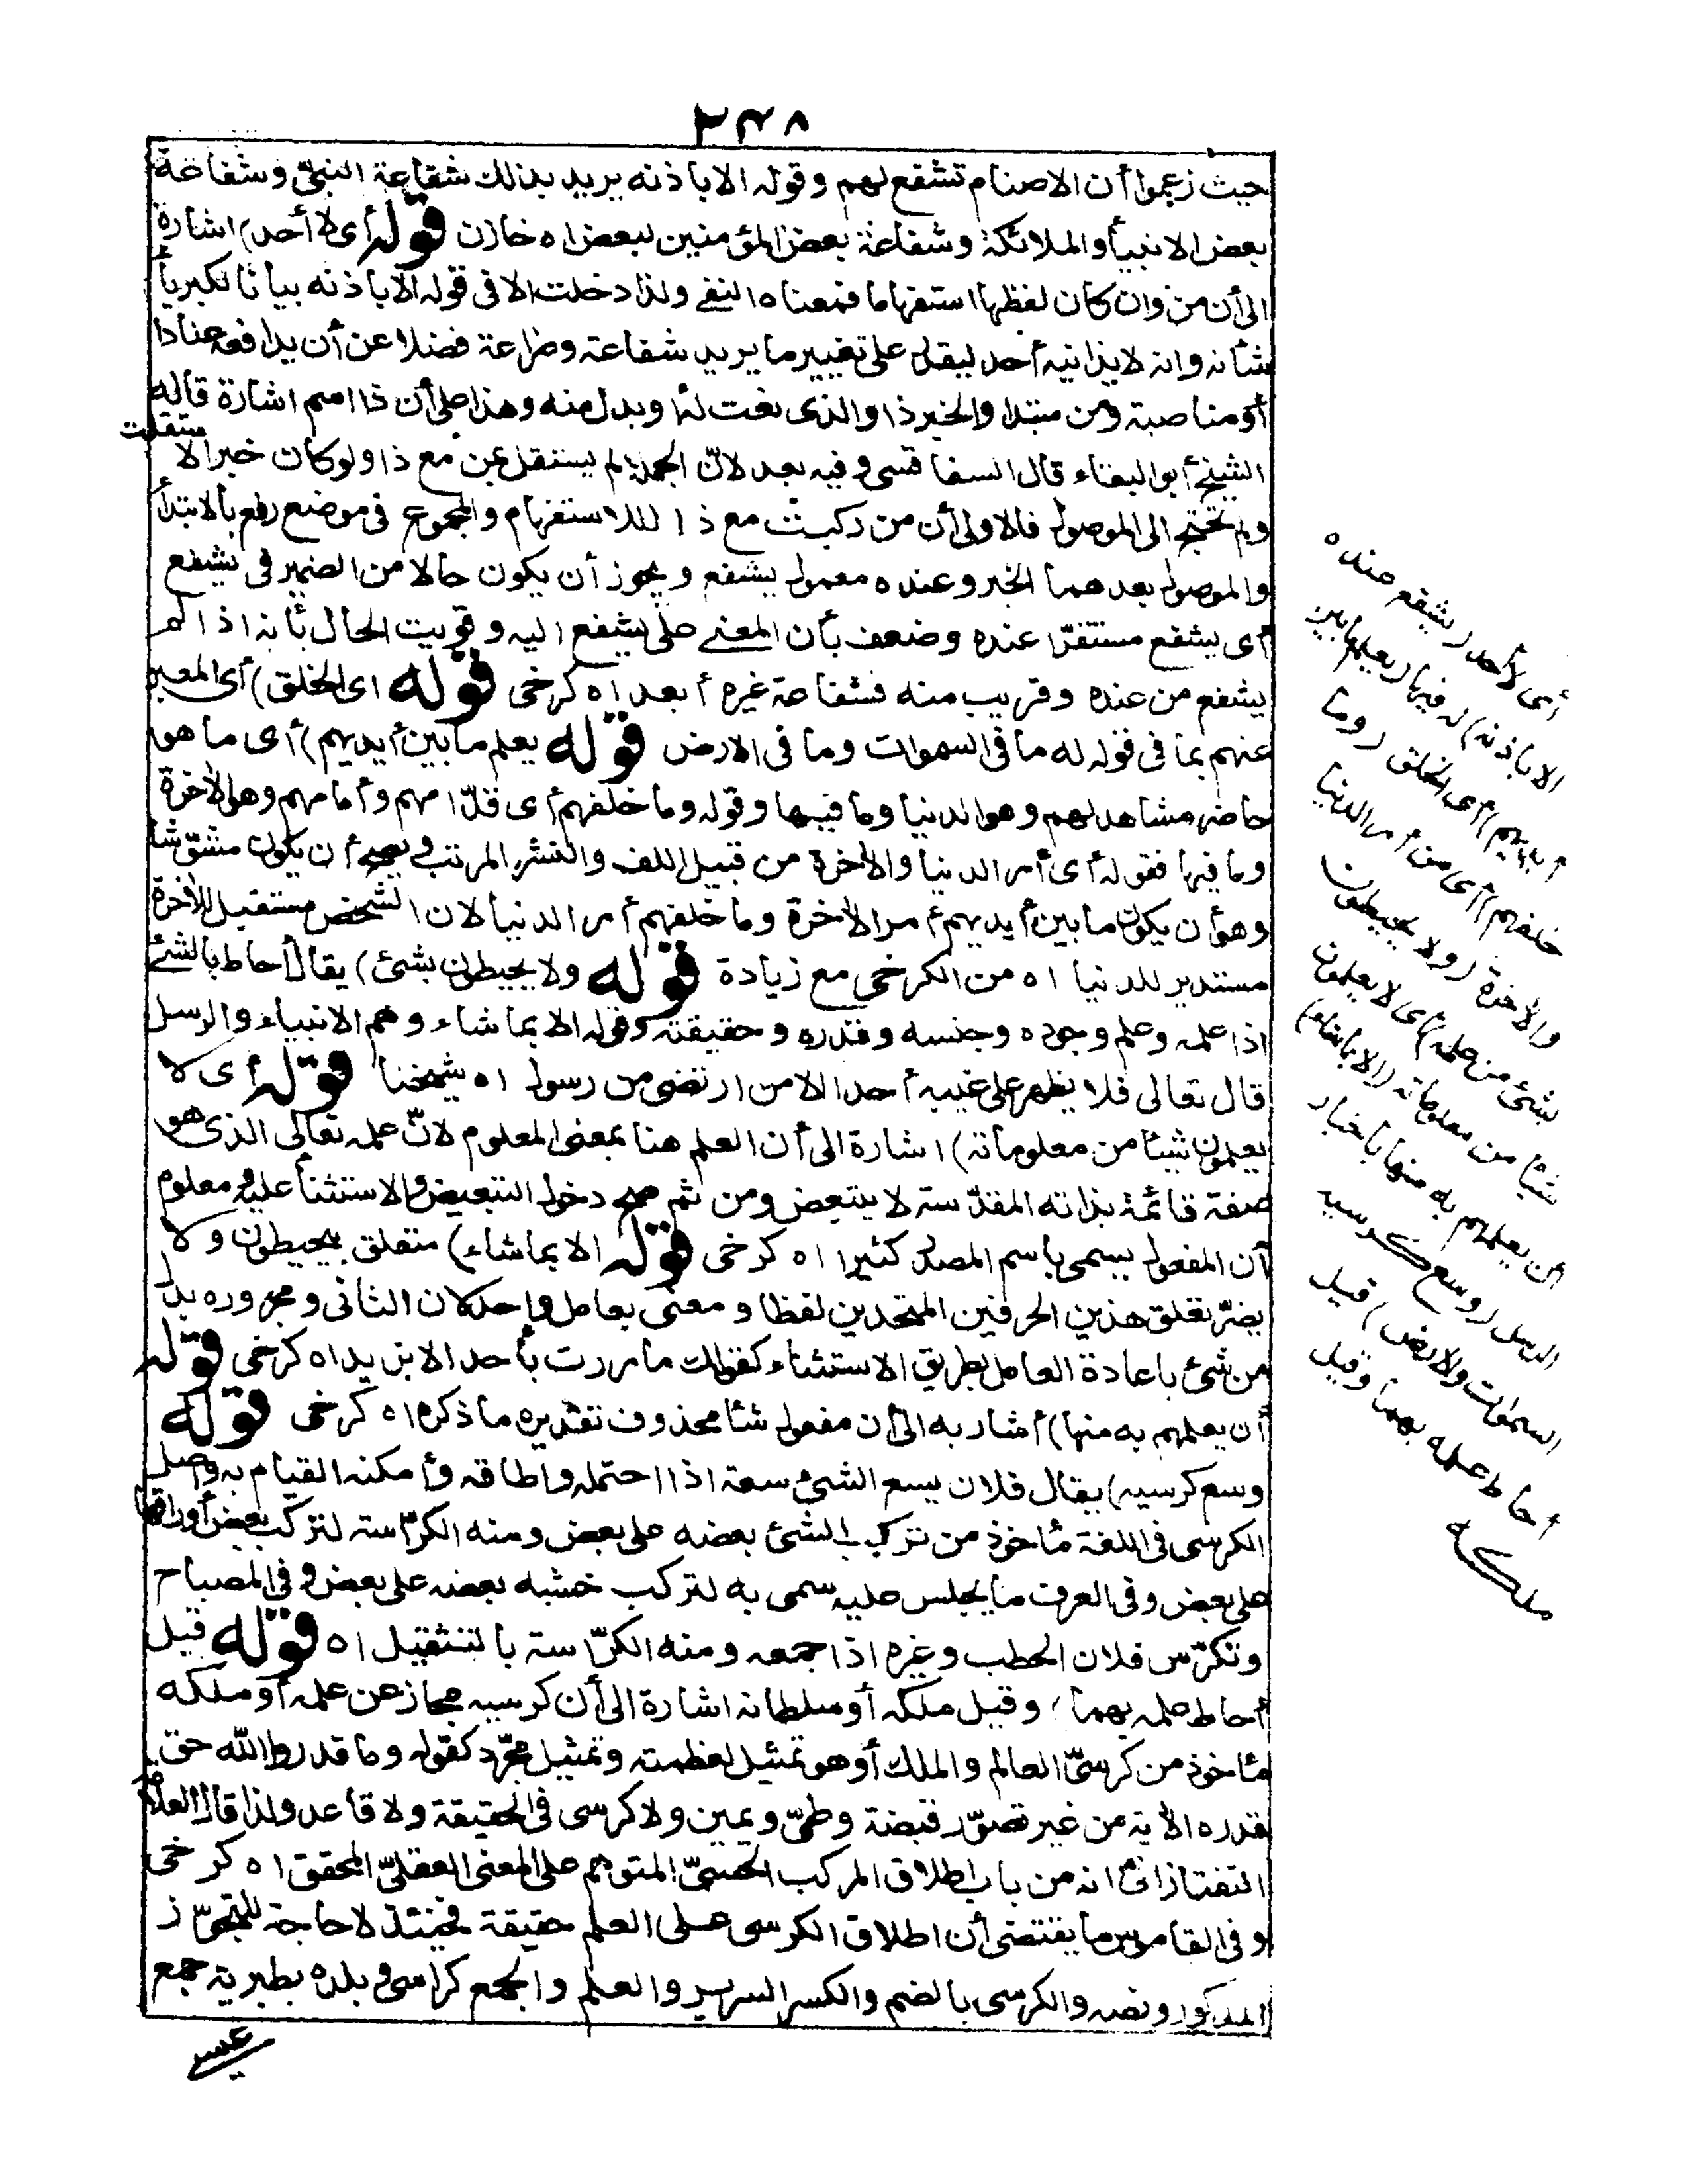 ٢٣٨
حيث زعموا أن الاصنام تشفع لهم وقوله الاباذنه يريد بذلك شفاعة النبىّ وشفاعة
بعض الانبيأ والملائكة وشفاعة بعض المؤمنين لبعض اه خازن قوله أى لا أحد) اشارة
الى أن من وان كان لفظها استفهاما فمعناه النفى ولذا دخلت الا فى قوله الاباذنه بيانا لكبريأ
شأنه وانه لايدانيه أحد ليقدر على تغيير ما يريد شفاعة وضراعة فضلا عن أن يدافعه عنادا
أو مناصبة ومن مبتدا والخبر ذا والذى نعت له أو بدل منه وهذا على أن ذا اسم اشارة قاله
الشيخ أبو البقاء قال السفاقسى وفيه بعد لانّ الجملة لم يستقل عن مع ذا ولو كان خبرا لا ستقلت
ولم تحتج الى الموصول فالاولى أن من ركبت مع ذا للاستفهام والمجموع فى موضع رفع بالابتدأ
والموصول بعدهما الخبر وعنده معمول يشفع ويجوز أن يكون حالا من الضمير فى يشفع
أى يشفع مستقرّا عنده وضعف بأن المعنى على يشفع اليه وقويت الحال بأنه اذا لم
يشفع من عنده وقريب منه فشفاعة غيره أبعد اه كرخى قوله اى الخلق) أى المعبر
عنهم بما فى قوله له ما فى السموات وما فى الارض قوله يعلم ما بين أيديهم) أى ما هو
حاضر مشاهد لهم وهو الدنيا وما فيها وقوله وما خلفهم أى قدّامهم وأمامهم وهو الآخرة
وما فيها فقوله أى أمر الدنيا والآخرة من قبيل اللف والنشر المرتب ويصح أن يكون مشوّشا
وهو أن يكون ما بين أيديهم أمر الآخرة وما خلفهم أمر الدنيا لان الشخص مستقبل للآخرة
مستدبر للدنيا اه من الكرخى مع زيادة قوله ولا يحيطون بشئ) يقال أحاط بالشئ
اذا علمه وعلم وجوده وجنسه وقدره وحقيقته وقوله الا بما شاء وهم الانبياء والرسل
قال تعالى فلا يظهر على غيبه أحدا الا من ارتضى من رسول اه شيخنا قوله أى لا
يعلمون شيئا من معلوماته) اشارة الى أن العلم هنا بمعنى المعلوم لانّ علمه تعالى الذى هو
صفة قائمة بذاته المقدّسة لا يتبعض ومن ثم صح دخول التبعيض والاستثنأ عليه ومعلوم
أن المفعول يسمى باسم المصدر كثيرا اه كرخى قوله الا بما شاء) متعلق بيحيطون ولا
يضرّ تعلق هذين الحرفين المتحدين لفظا ومعنى بعامل واحد لان الثانى ومجروره بدل
من شئ باعادة العامل بطريق الاستثناء كقولك ما مررت بأحد الا بزيد اه كرخى قوله
أن يعلمهم به منها) أشار به الى أن مفعول شأ محذوف تقديره ما ذكره اه كرخى قوله
وسع كرسيه) يقال فلان يسع الشئ سعة اذا احتمله وأطاقه وأمكنه القيام به وأصل
الكرسى فى اللغة مأخوذ من تركب الشئ بعضه على بعض ومنه الكرّاسة لتركب بعض أوراقها
على بعض وفى العرف ما يجلس عليه سمى به لتركب خشبه بعضه على بعض وفى المصباح
وتكرّس فلان الحطب وغيره اذا جمعه ومنه الكرّاسة بالتثقيل اه قوله قيل
أحاط علمه بهما) وقيل ملكه أو سلطانه اشارة الى أن كرسيه مجاز عن علمه أو ملكه
مأخوذ من كرسىّ العالم والملك أو هو تمثيل لعظمته وتمثيل مجرّد كقوله وما قدروا الله حق
قدره الآية من غير تصوّر قبضة وطىّ ويمين ولا كرسى فى الحقيقة ولا قاعد ولذا قال العلامة
التفتازانى انه من باب اطلاق المركب الحسىّ المتوهم على المعنى العقلىّ المحقق اه كرخى
وفى القاموس ما يقتضى أن اطلاق الكرسى على العلم حقيقة فحينئذ لا حاجة للتجوّز
المذكور ونصه والكرسى بالضم والكسر السرير والعلم والجمع كراسى وبلدة بطبرية جمع
أى لا أحد (يشفع عنده
الا باذنه) له فيها (يعلم ما بين
أيديهم) أى الخلق (وما
خلفهم) أى من أمر الدنيا
والآخرة (ولا يحيطون
بشئ من علمه) أى لا يعلمون
شيأ من معلوماته (الا بما شاء)
أن يعلمهم به منها باخبار
الرسل (وسع كرسيه
السموات والارض) قيل
أحاط علمه بهما وقيل
ملكه